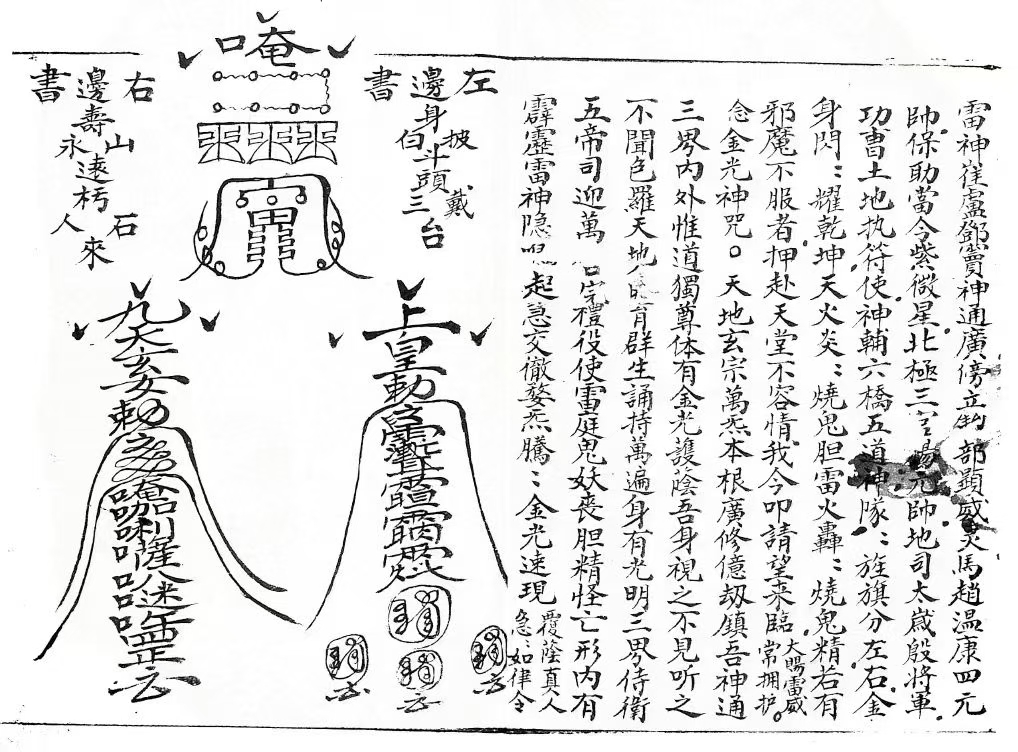 雷神崔盧鄧竇神通廣傍立部顯威灵馬趙溫康四元
帥保助當令紫微星北極三元帥地司太歲殷將軍
功曹土地执符使神輔六橋五道神隊：旌旗分左右金
身閃：耀乾坤天火炎：燒鬼胆雷火轟：燒鬼精若有
邪魔不服者押赴天堂不容情我今叩請望來臨大賜雷威常拥护。
念金光神咒。天地玄宗萬炁本根廣修億劫鎮吾神通
三界內外惟道獨尊体有金光護蔭吾身視之不見听之
不聞色羅天地育群生誦持萬遍身有光明三界侍衛
五帝司迎萬禮役使雷庭鬼妖喪胆精怪亡形內有
霹靂雷神隐起急交徹婺炁騰：金光速現覆蔭真人急：如律令
左邊書
身披
白斗頭戴
三台
上皇勅
唵
右邊書
壽山
永遠朽石
人來
九天玄女勅
唵